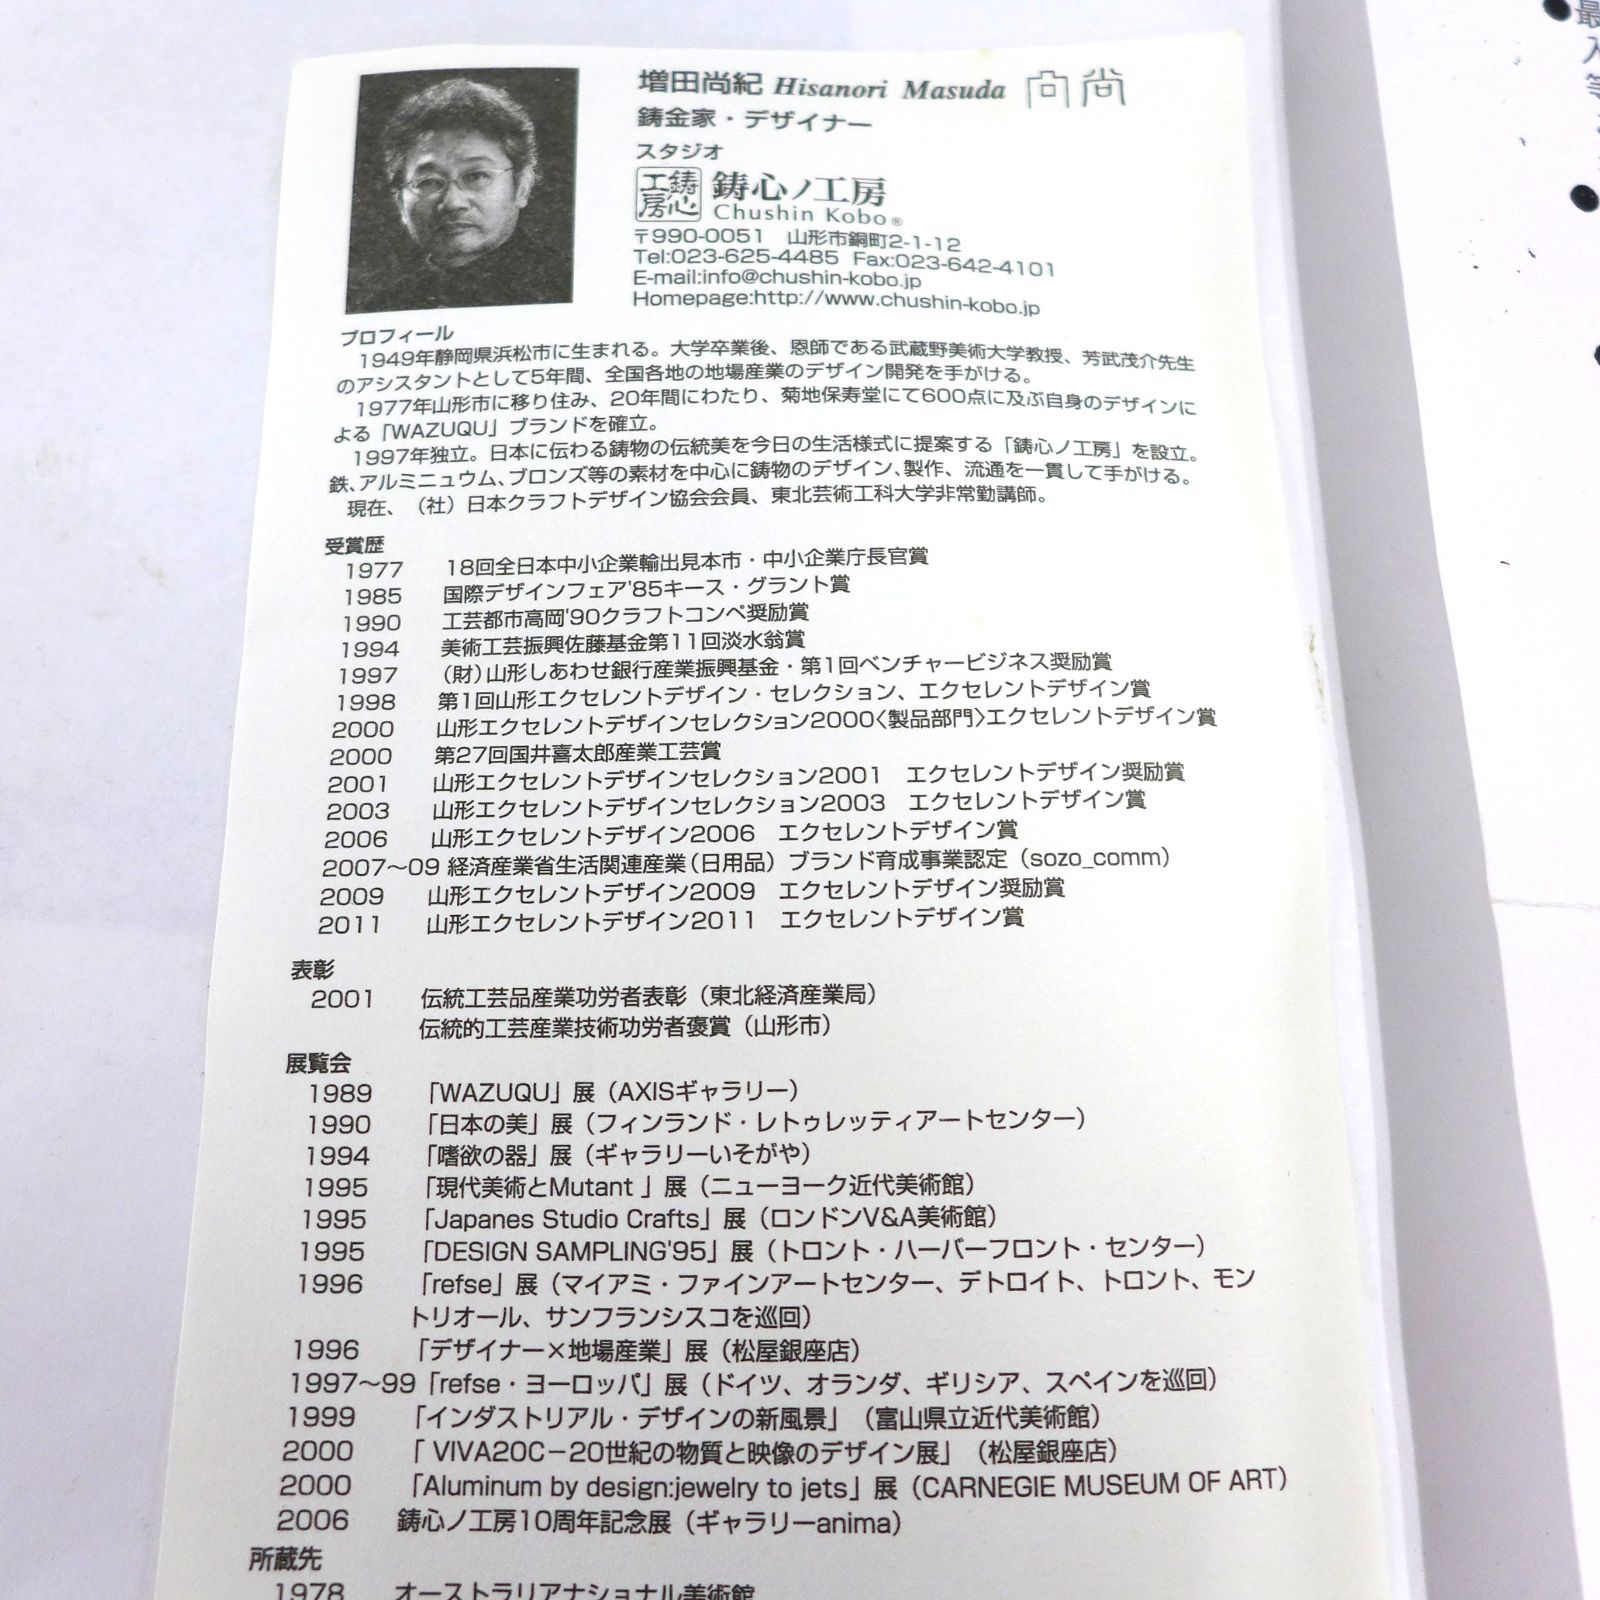 増田尚紀 Hisanori Masuda
鋳金家・デザイナー
スタジオ
鋳心工房 鋳心ノ工房
Chushin Kobo®
〒990-0051 山形市銅町2-1-12
Tel:023-625-4485 Fax:023-642-4101
E-mail:info@chushin-kobo.jp
Homepage:http://www.chushin-kobo.jp
プロフィール
1949年静岡県浜松市に生まれる。大学卒業後、恩師である武蔵野美術大学教授、芳武茂介先生
のアシスタントとして5年間、全国各地の地場産業のデザイン開発を手がける。
1977年山形市に移り住み、20年間にわたり、菊地保寿堂にて600点に及ぶ自身のデザインに
よる「WAZUQU」ブランドを確立。
1997年独立。日本に伝わる鋳物の伝統美を今日の生活様式に提案する「鋳心ノ工房」を設立。
鉄、アルミニュウム、ブロンズ等の素材を中心に鋳物のデザイン、製作、流通を一貫して手がける。
現在、（社）日本クラフトデザイン協会会員、東北芸術工科大学非常勤講師。
受賞歴
1977 18回全日本中小企業輸出見本市・中小企業庁長官賞
1985 国際デザインフェア'85キース・グラント賞
1990 工芸都市高岡'90クラフトコンペ奨励賞
1994 美術工芸振興佐藤基金第11回淡水翁賞
1997 （財）山形しあわせ銀行産業振興基金・第1回ベンチャービジネス奨励賞
1998 第1回山形エクセレントデザイン・セレクション、エクセレントデザイン賞
2000 山形エクセレントデザインセレクション2000〈製品部門〉エクセレントデザイン賞
2000 第27回国井喜太郎産業工芸賞
2001 山形エクセレントデザインセレクション2001 エクセレントデザイン奨励賞
2003 山形エクセレントデザインセレクション2003 エクセレントデザイン賞
2006 山形エクセレントデザイン2006 エクセレントデザイン賞
2007〜09 経済産業省生活関連産業（日用品）ブランド育成事業認定（sozo_comm）
2009 山形エクセレントデザイン2009 エクセレントデザイン奨励賞
2011 山形エクセレントデザイン2011 エクセレントデザイン賞
表彰
2001 伝統工芸品産業功労者表彰（東北経済産業局）
伝統的工芸産業技術功労者褒賞（山形市）
展覧会
1989 「WAZUQU」展（AXISギャラリー）
1990 「日本の美」展（フィンランド・レトゥレッティアートセンター）
1994 「嗜欲の器」展（ギャラリーいそがや）
1995 「現代美術とMutant 」展（ニューヨーク近代美術館）
1995 「Japanes Studio Crafts」展（ロンドンV&A美術館）
1995 「DESIGN SAMPLING'95」展（トロント・ハーバーフロント・センター）
1996 「refse」展（マイアミ・ファインアートセンター、デトロイト、トロント、モン
トリオール、サンフランシスコを巡回）
1996 「デザイナー×地場産業」展（松屋銀座店）
1997〜99「refse・ヨーロッパ」展（ドイツ、オランダ、ギリシア、スペインを巡回）
1999 「インダストリアル・デザインの新風景」（富山県立近代美術館）
2000 「 VIVA20C－20世紀の物質と映像のデザイン展」（松屋銀座店）
2000 「Aluminum by design:jewelry to jets」展（CARNEGIE MUSEUM OF ART）
2006 鋳心ノ工房10周年記念展（ギャラリーanima）
所蔵先
1978 オーストラリアナショナル美術館